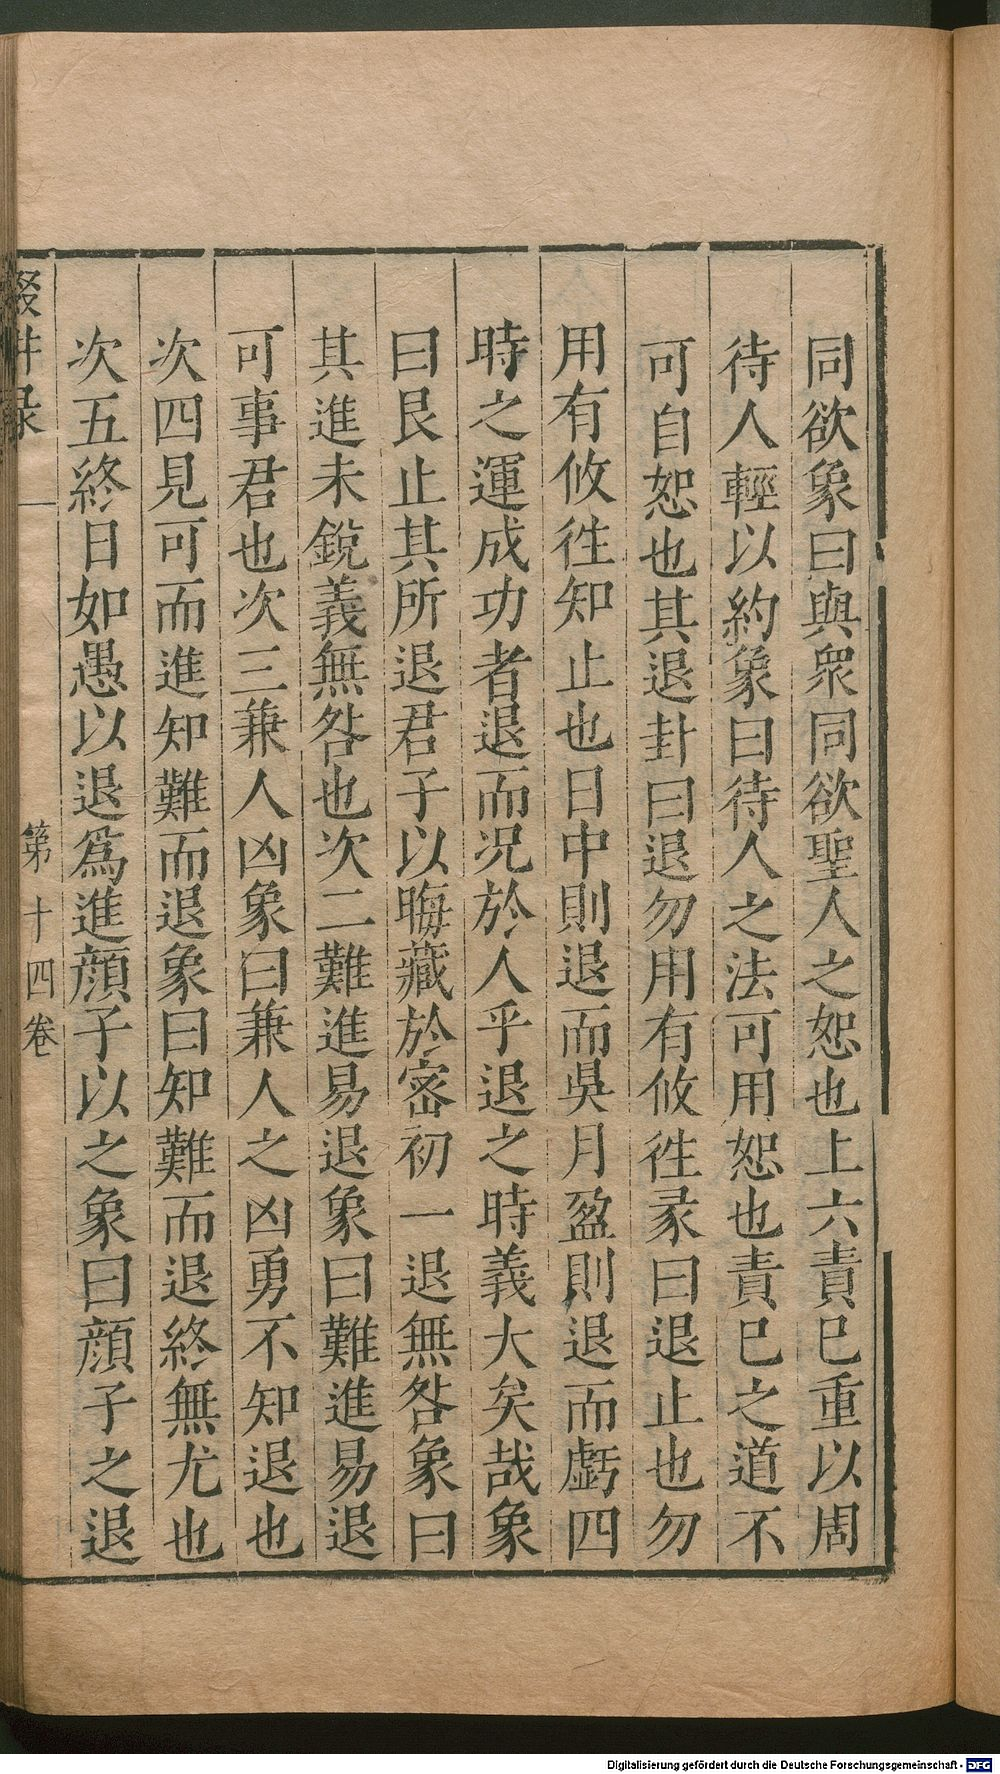 同欲象曰與衆同欲聖人之恕也上六責已重以周
待人輕以約象曰待人之法可用恕也責已之道不
可自恕也其退卦曰退勿用有攸徃彖曰退止也勿
用有攸徃知止也日中則退而吳月盈則退而虧四
時之運成功者退而況於人乎退之時義大矣哉象
曰艮止其所退君子以晦藏於密初一退無咎象曰
其進未銳義無咎也次二難進易退象曰難進易退
可事君也次三兼人凶象曰兼人之凶勇不知退也
次四見可而進知難而退象曰知難而退終無尤也
次五終日如愚以退爲進顔子以之象曰顔子之退
耕录
第十四卷
Digitalisierung gefördert durch die Deutsche Forschungsgemeinschaft - DFG